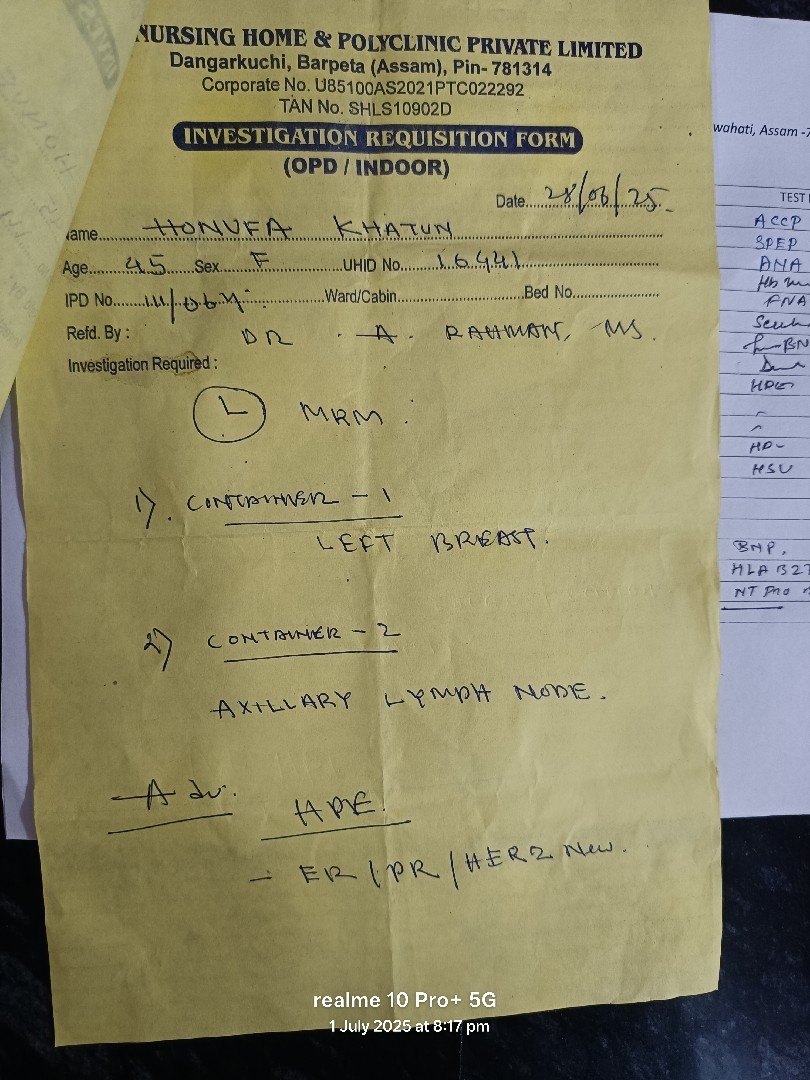 NURSING HOME & POLYCLINIC PRIVATE LIMITED
Dangarkuchi, Barpeta (Assam), Pin- 781314
Corporate No. U85100AS2021PTC022292
TAN No. SHLS10902D
INVESTIGATION REQUISITION FORM
(OPD / INDOOR)
Date 28/06/25
ame HONUFA KHATUN
Age 45 Sex F UHID No. 16441
IPD No. Ward/Cabin Bed No.
Refd. By : DR. A. RAHMAN, MS.
Investigation Required :
L MRM :
1) CONTAINER - 1
LEFT BREAST.
2) CONTAINER - 2
AXILLARY LYMPH NODE.
Adv. HPE.
- ER / PR / HER2 New.
wahati, Assam -7
TEST
ACCP
ANA
HSV
BNP.
HLA B27
NT Pro
realme 10 Pro+ 5G
1 July 2025 at 8:17 pm